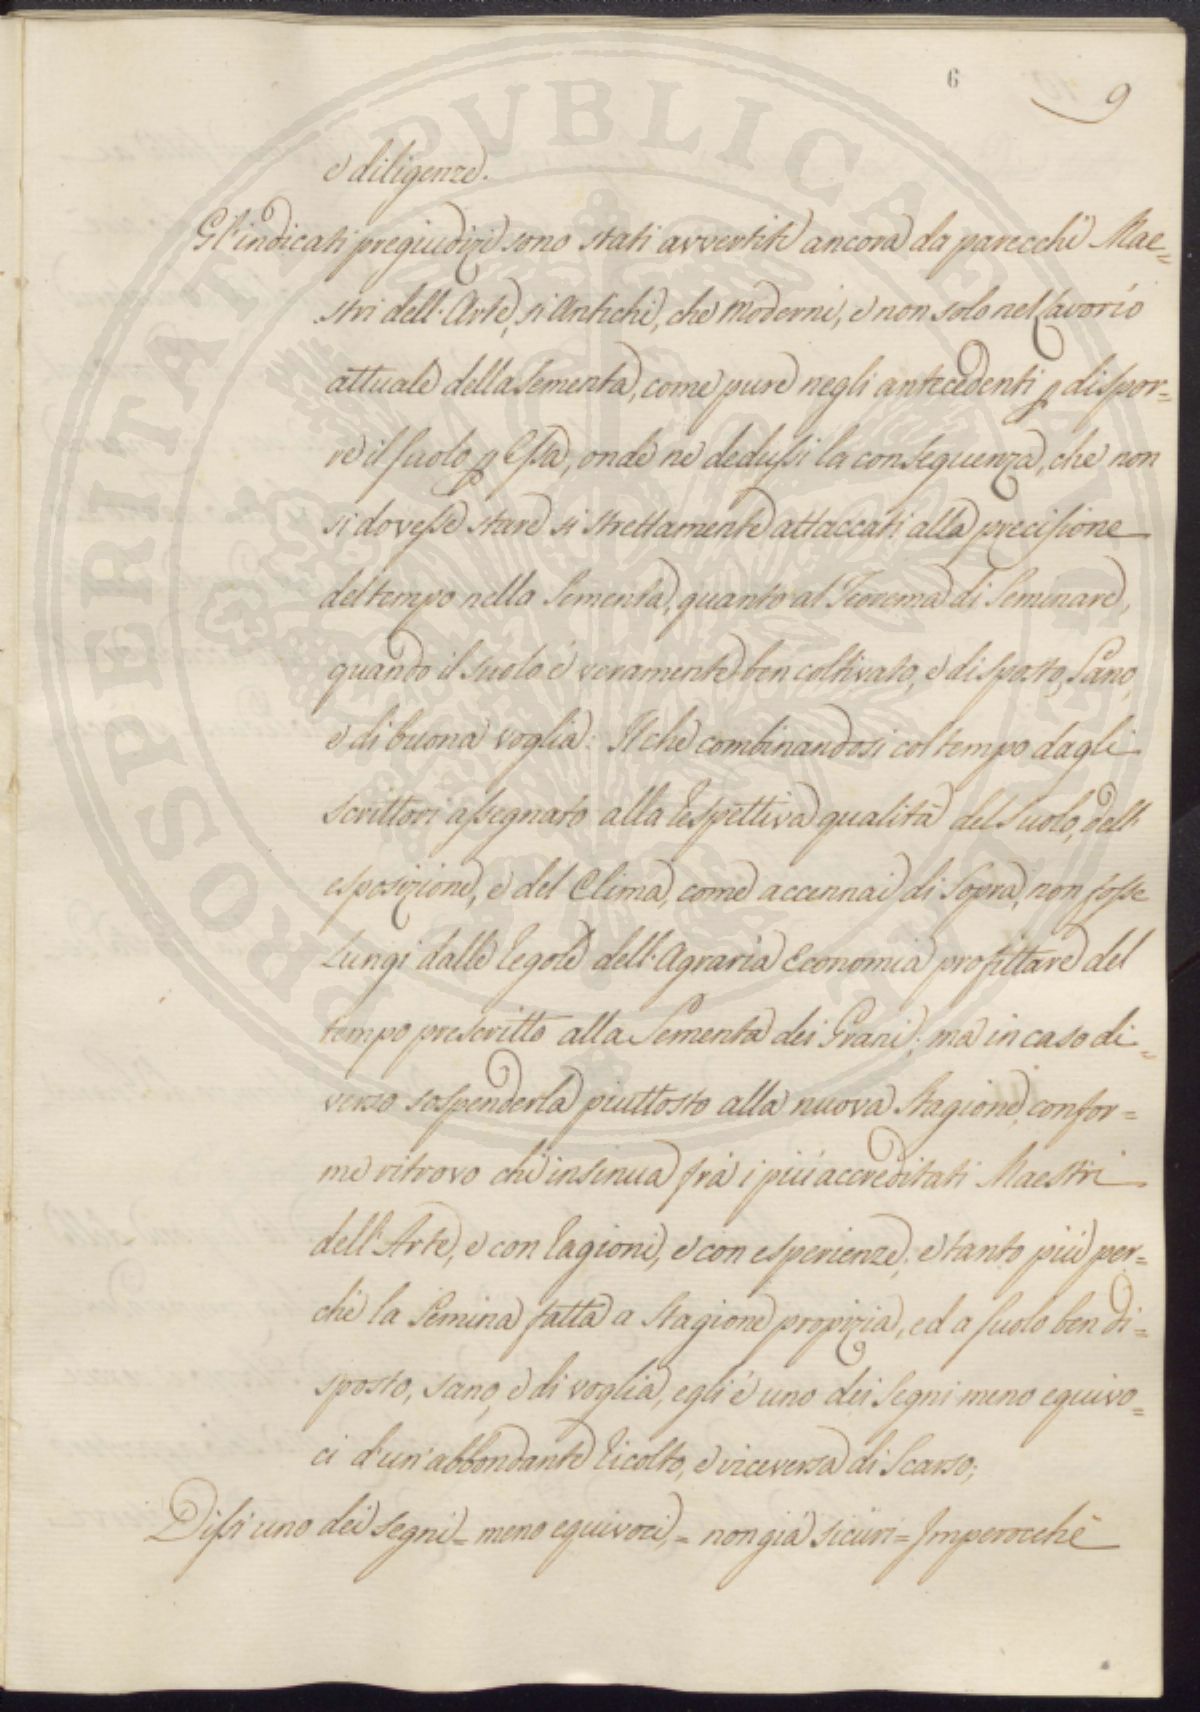 6
9
e diligenze.
Gl'indicati pregiudizj sono stati avvertiti ancora da parecchi Mae=
stri dell'Arte, si Antichi, che Moderni, e non solo nel Lavorío
attuale della Sementa, come pure negli antecedenti p dispor=
re il suolo p Essa, onde ne dedussi la conseguenza, che non
si dovesse stare si strettamente attaccati alla precisione
del tempo nella Sementa, quanto al Teorema di Seminare,
quando il suolo é veramente ben coltivato, e disposto, Sano,
e di buona voglia: Il che combinandosi col tempo dagli
scrittori assegnato alla respettiva qualità del Suolo, dell'
esposizione, e del Clima, come accennai di Sopra, non fosse
Lungi dalle regole dell'Agraria Economia profittare del
tempo prescritto alla Sementa dei Grani; ma in caso di=
verso sospenderla piuttosto alla nuova Stagione, confor=
me ritrovo chi insinua frà i più accreditati Maestri
dell'Arte, e con ragioni, e con esperienze; e tanto più per=
chè la Semina fatta a Stagione propizia, ed a suolo ben di=
sposto, sano, e di voglia, egli é uno dei Segni meno equivo=
ci d'un'abbondante ricolto, e viceversa di Scarso;
Dissi uno dei segni = meno equivoci, = non già sicuri = Imperocchè
PROSPERITATI PVBLICAE AVGENDAE